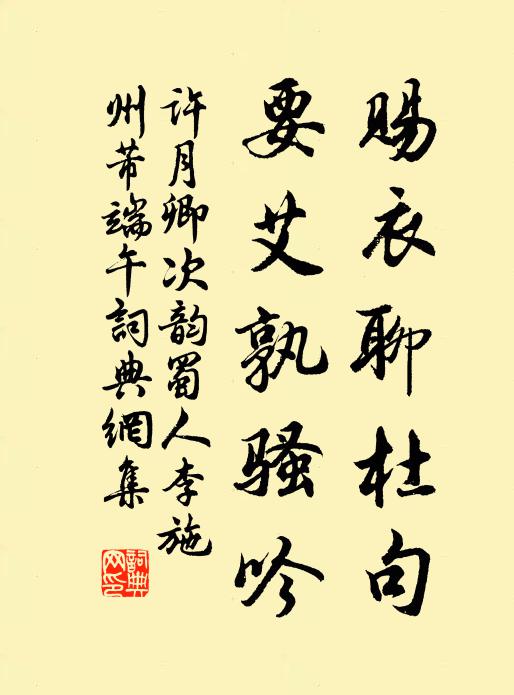 赐衣聊杜句
要艾孰骚吟
许月卿次韵蜀人李施
州芾端午詞典網集
詞典網印